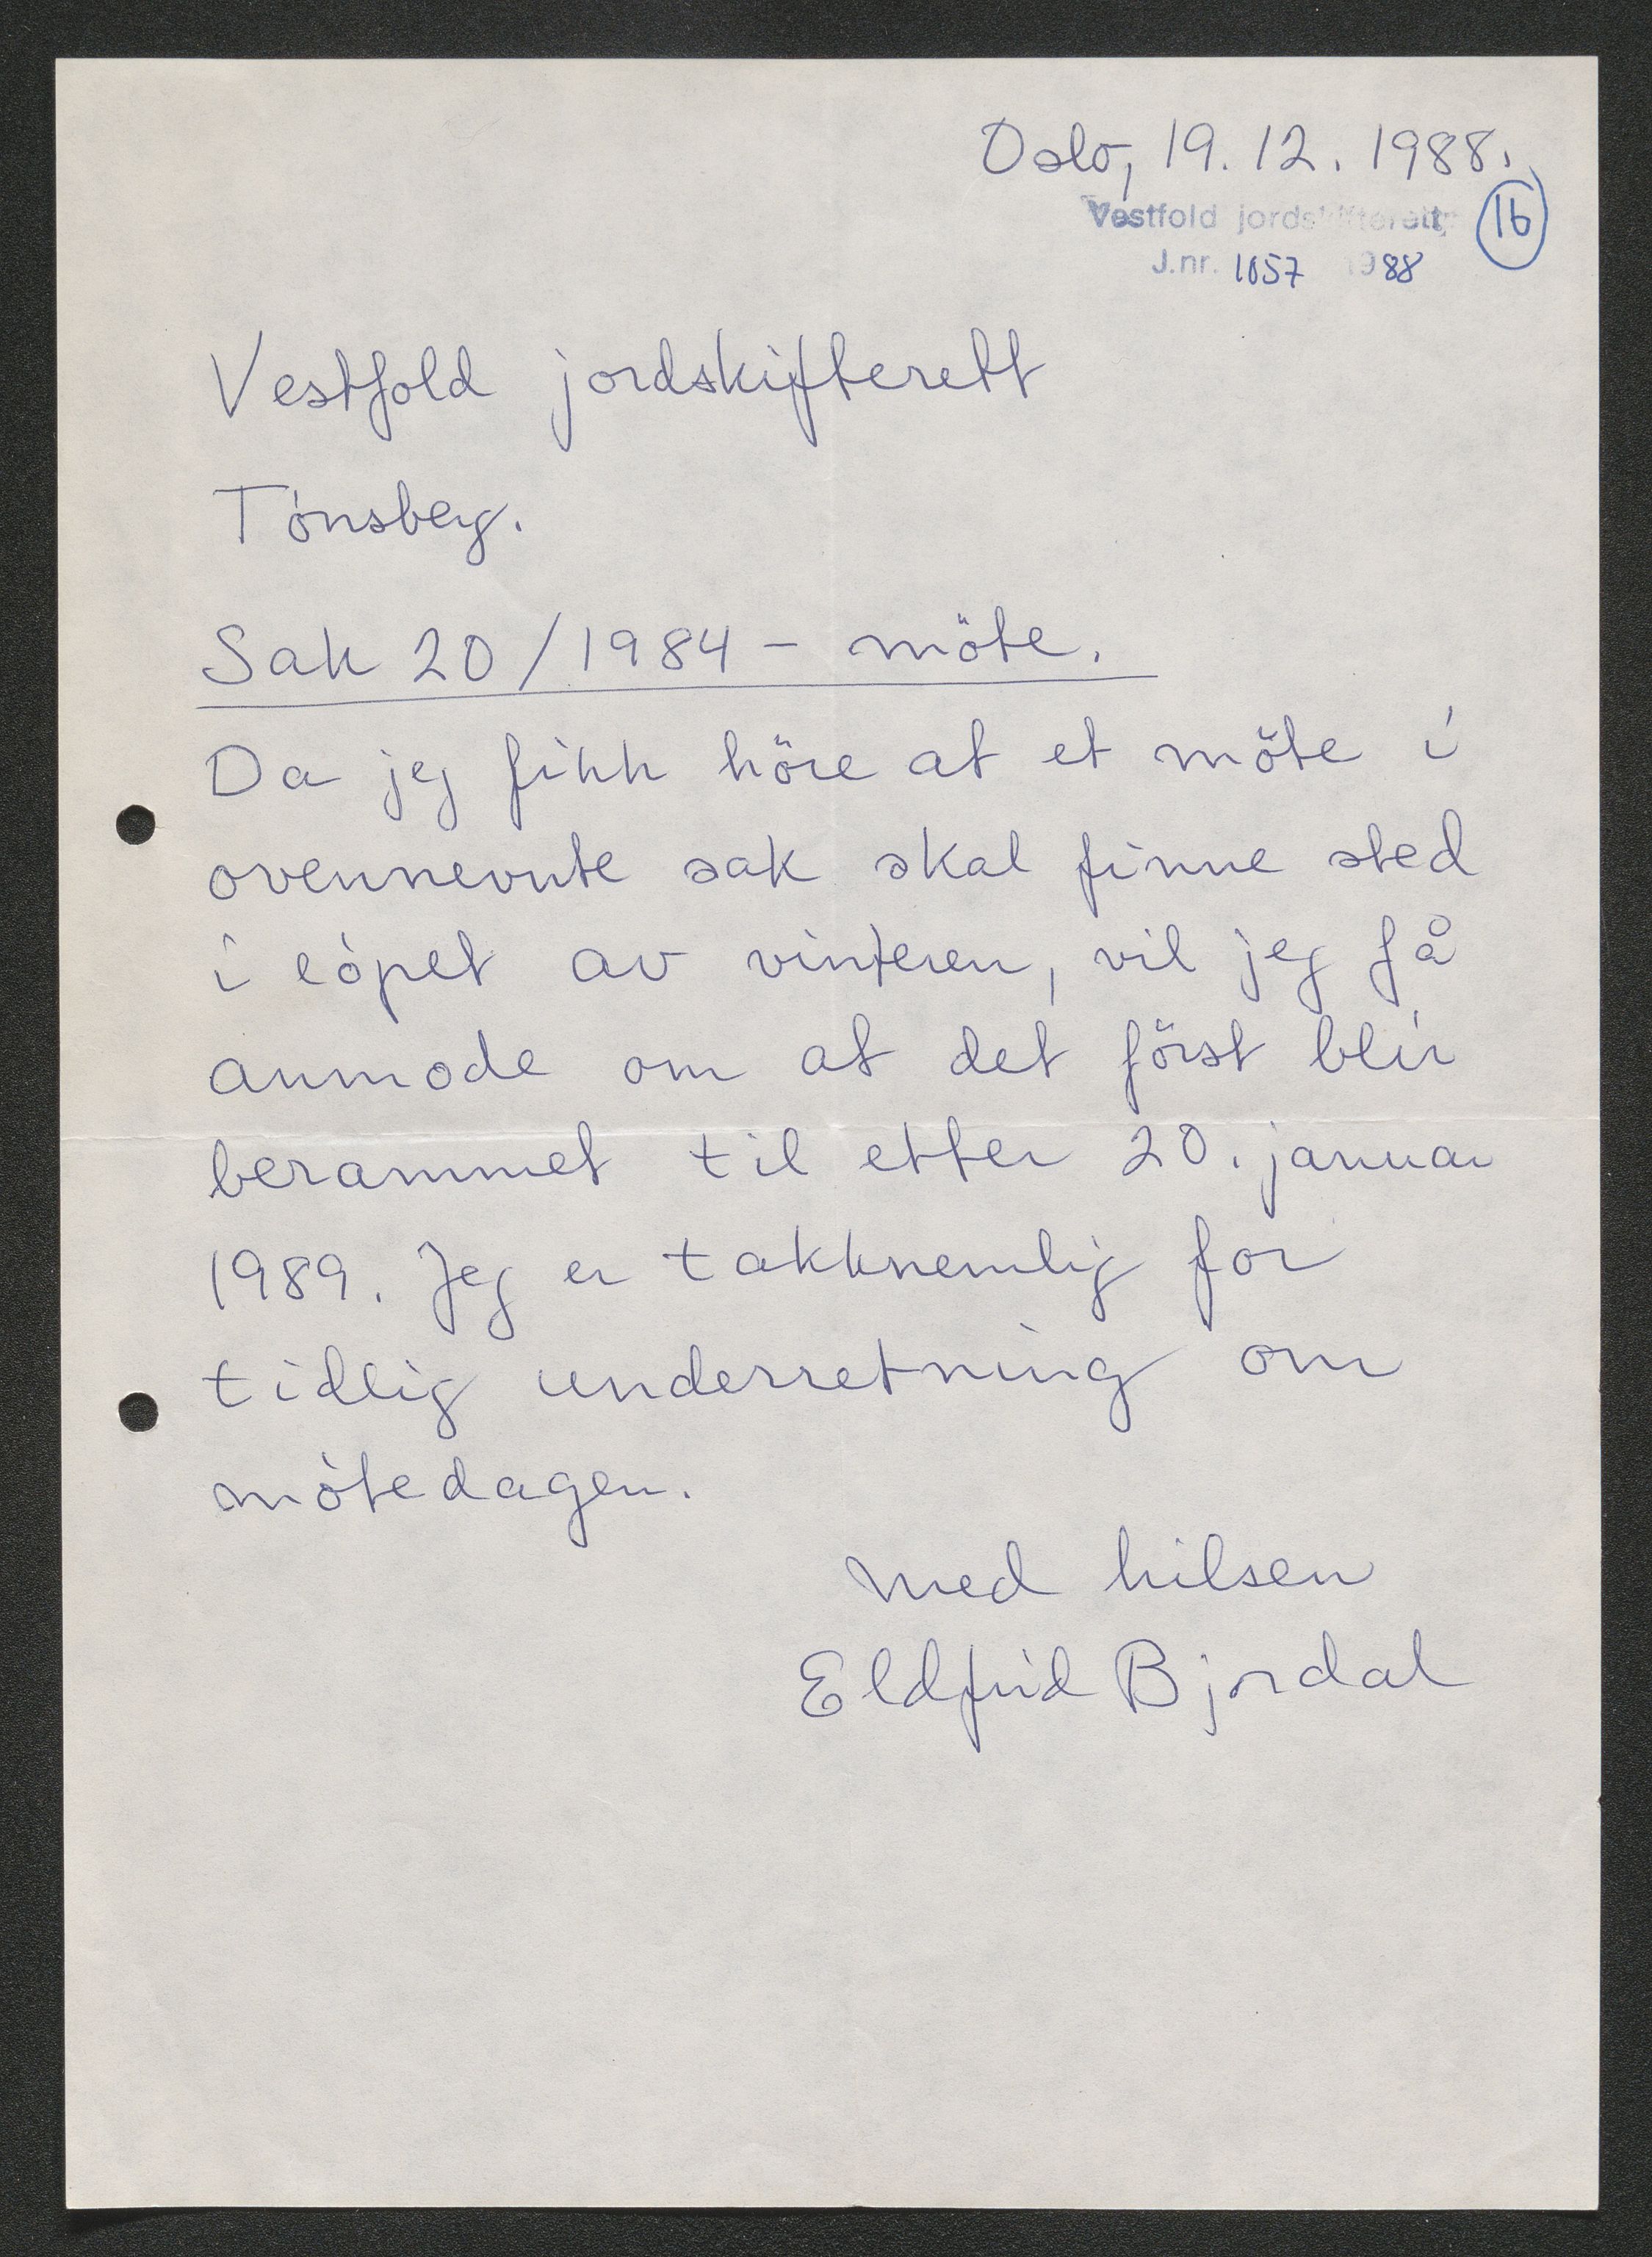 Oslo, 19.12.1988.
Vestfold jordskifterett
J.nr. 1057 1988
16
Vestfold jordskifterett
Tönsberg.
Sak 20/1984 - möte.
Da jeg fikk höre at et möte i
ovennevnte sak skal finne sted
i löpet av vinteren, vil jeg få
anmode om at det först blir
berammet til etter 20. januar
1989. Jeg er takknemlig for
tidlig underretning om
mötedagen.
Med hilsen
Eldfrid Bjordal